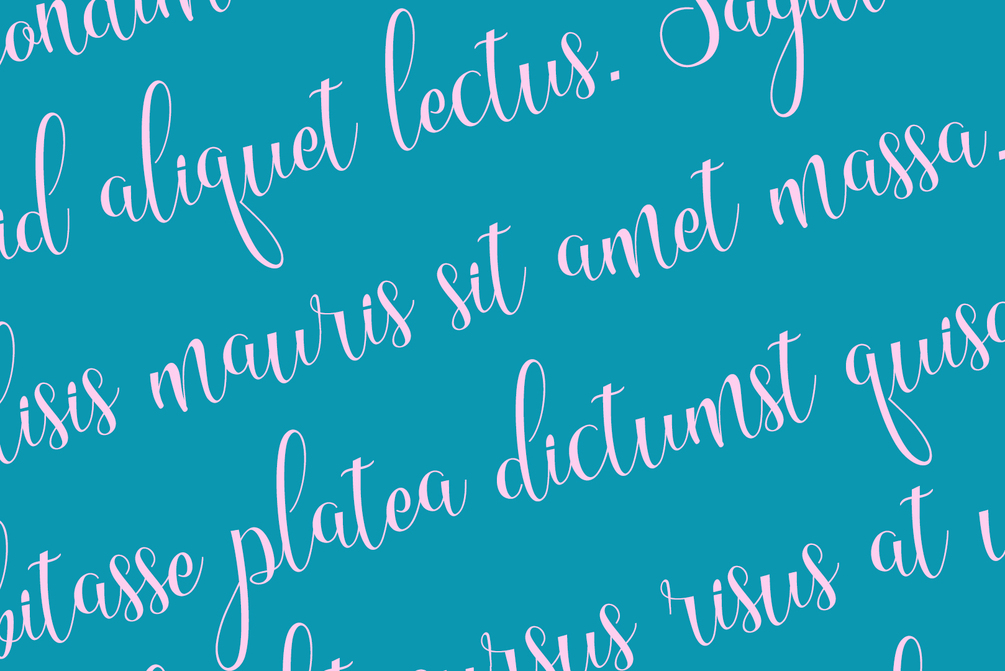 id aliquet lectus. Sagitt
lisis mauris sit amet massa.
bitasse platea dictumst quisq
cursus risus at